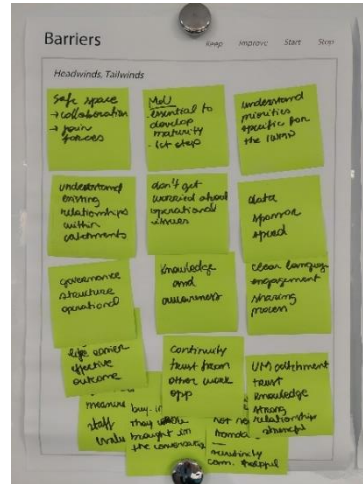 Barriers
Keep Improve Start Stop
Headwinds, Tailwinds
Safe space
→ collaboration
→ join
forces
MoU
- essential to
develop
maturity
- 1st step
understand
priorities
specific for
the
understand
existing
relationships
within
catchments
don't get
worried about
operational
issues
data
sponsor
speed
governance
structure
operational
knowledge
and
awareness
clear language
engagement
sharing
process
life easier
effective
outcome
continuity
trust from
other work
opp
UM catchment
trust
knowledge
strong
relationship
measure
staff
buy. i
they
brought in
the conversation
not no
com. helpful